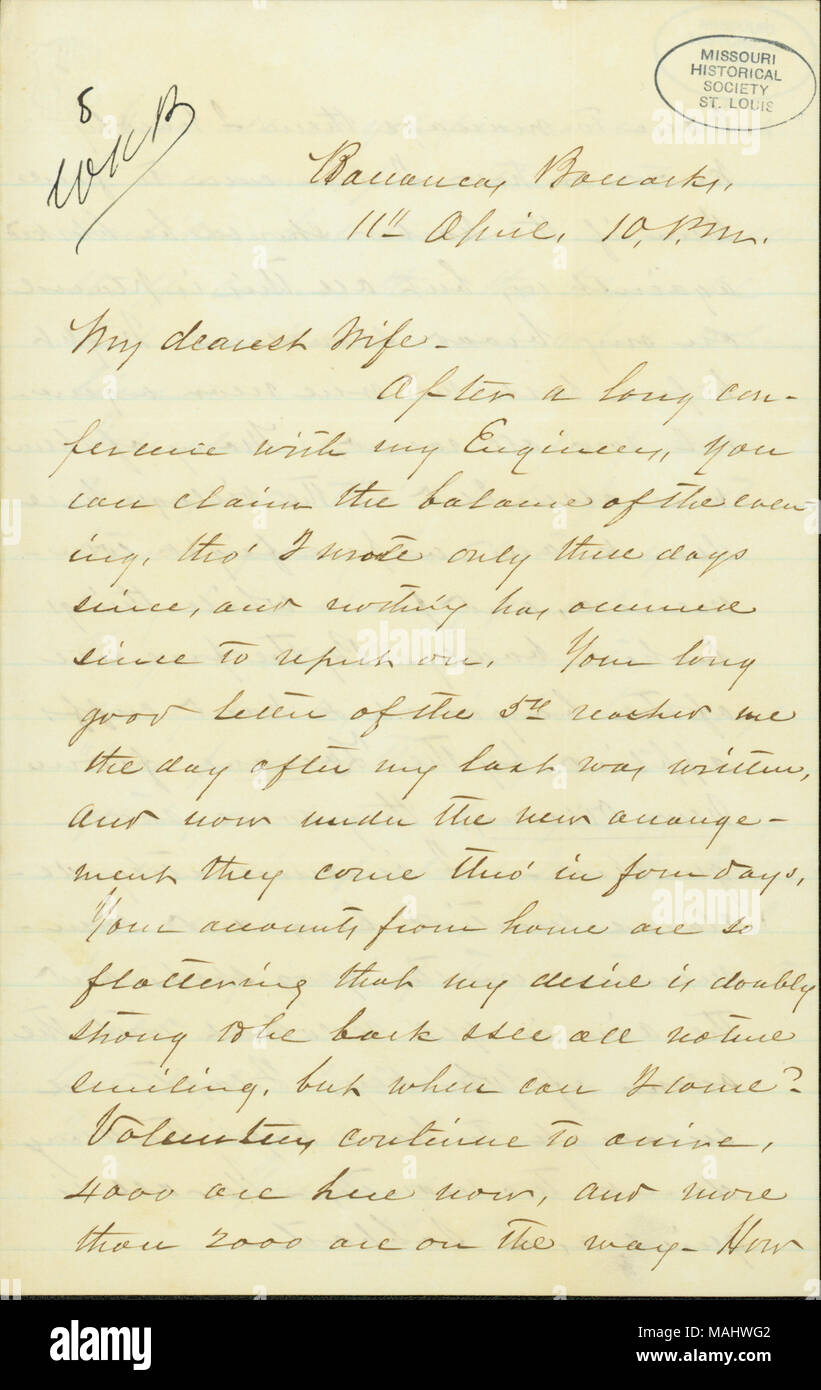 MISSOURI
HISTORICAL
SOCIETY
ST. LOUIS
8
WKB
Barrancas Barracks,
11th April, 10, P.M.
My dearest Wife-
After a long con-
ference with my Engineers, you
can claim the balance of the even
ing, tho' I wrote only three days
since, and nothing has occurred
since to report on. Your long
good letter of the 5th reached me
the day after my last was written,
and now under the new arrange-
ment they come thro' in four days.
Your accounts from home are so
flattering that my desire is doubly
strong to be back & see all nature
smiling, but when can I come?
Volunteers continue to arrive,
4000 are here now, and more
than 2000 are on the way- How
alamy
Image ID: MAHWG2
www.alamy.com